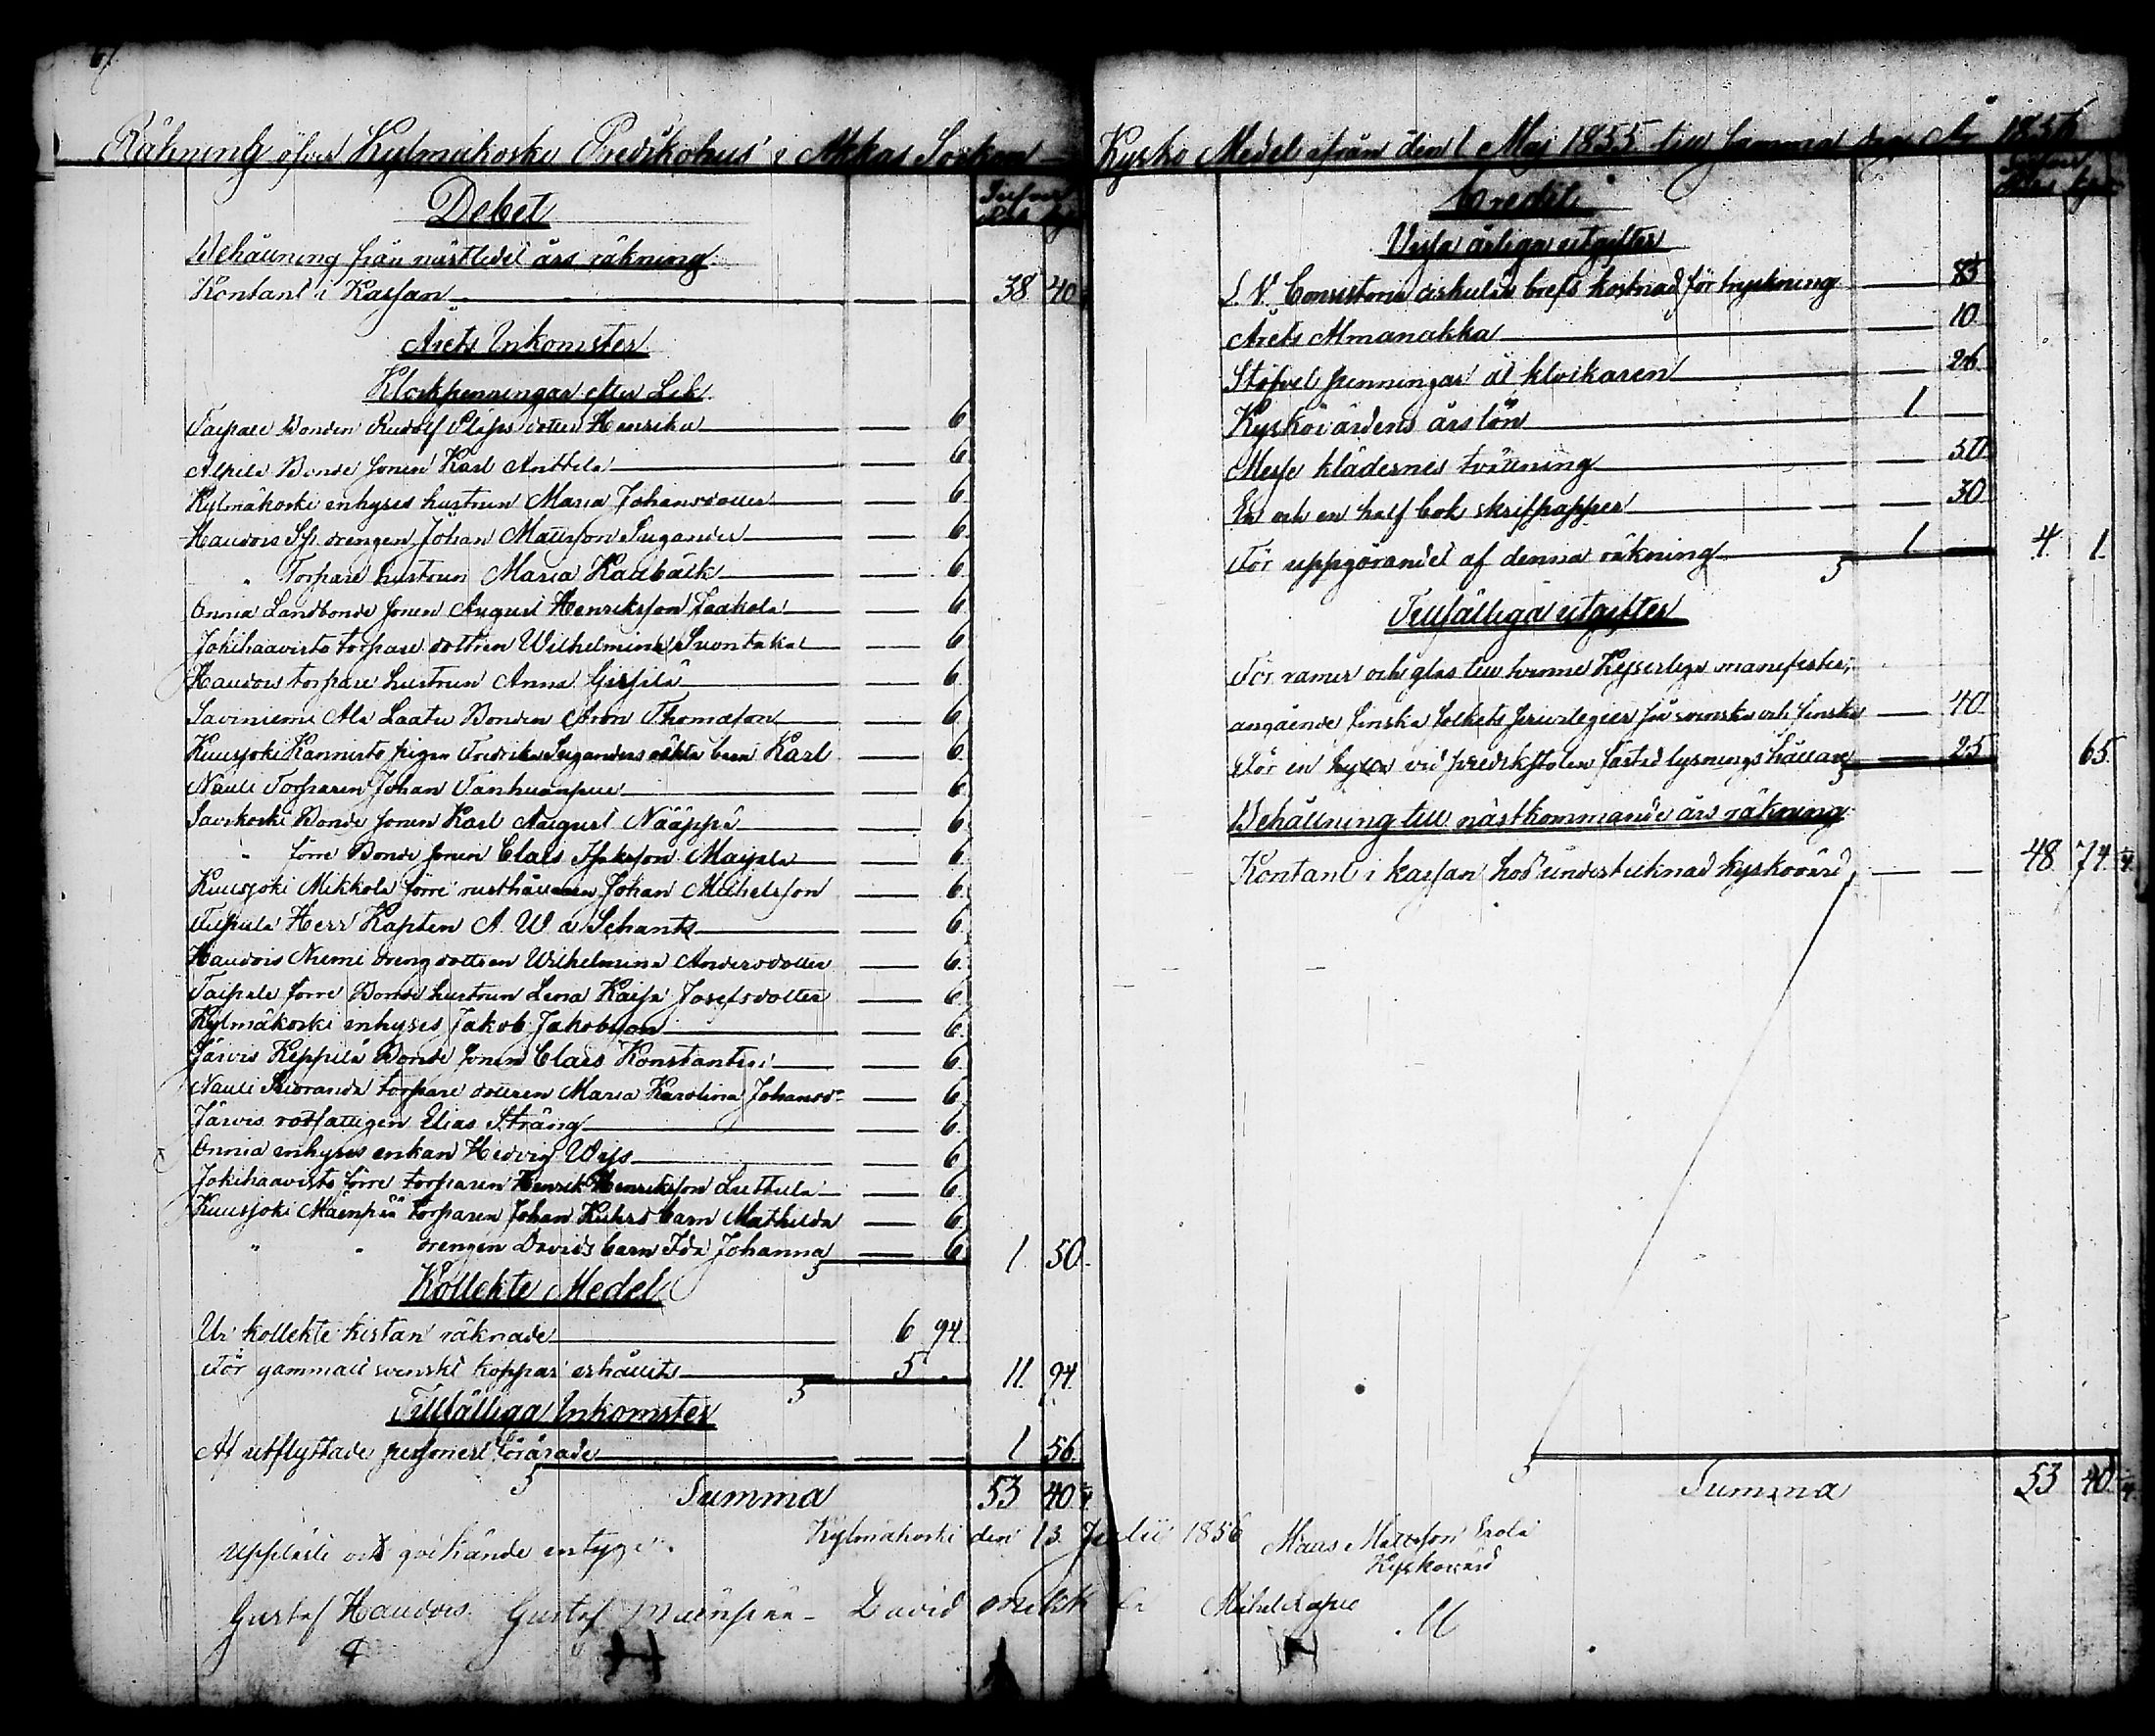 Räkning öfver Kylmäkoski Predikohus i Akkas Sockn Kyrko Medel ifrån den 1 Maj 1855 till samma dag År 1856
Debet
Silfver
Rub. kop.
Behållning från nästledet års räkning
Kontant i Kassan 38 40
Årets Inkomster
Klockpenningar efter Lik
Taipale Bonden Rudolf dotter Henrika 6.
Alpila Bonde sonen Karl Anttila 6.
Kylmäkoski inhyses hustrun Maria Johansdotter 6.
Haudois drengen Johan Mattsson Sugander 6.
" Torpare hustrun Maria Kaabäck 6.
Onnia Landbonde sonen August Henriksson Jaakola 6.
Jokihaavisto torpare dottren Wilhelmina Suontaka 6.
Haudois torpare hustrun Anna 6.
Saviniemi Ala Laatu Bonden Aron Thomasson 6.
Kuusjoki Kannisto pigan Fredrika Suganders oäkta barn Karl 6.
Nauli Torparen Johan Vanhanpuu 6.
Savikoski Bonde sonen Karl August Nääppä 6.
" förre Bonde sonen Claes Isaksson Maijala 6.
Kuusjoki Mikkola förre rusthållaren Johan Michelsson 6.
Herr Kapten A. W. a Schants 6.
Haudois Niemi dreng dottren Wilhelmina Andersdotter 6.
Taipale förre Bonde hustrun Lena Kaisa Josefsdotter 6.
Kylmäkoski inhyses Jakob Jakobsson 6.
Järvis Keppilä Bonde sonen Claes Konstantin 6.
Nauli torpare dottren Maria Karolina Johansd 6.
Järvis rotfattigen Elias Sträng 6.
Onnia inhyses enkan Hedvig Weis 6.
Jokihaavisto förre torparen Henrik Henriksson Luttula 6.
Kuusjoki Mäenpää torparen Johan barn Mathilda 6.
" " drengen Davids barn Ida Johanna 6. 1 50.
Kollekte Medel
Ur kollekte kistan räknade 6 94.
För gammalt svenskt koppar erhållits 5 . 11. 94.
Tillfälliga Inkomster
Af utflyttade personer förärade 1 56.
Summa 53 40
Kylmäkoski den 13 Julii 1856
Uppläst och godkände intyga
Gustaf Haudois Gustaf Mäenpää David
Credit
Silfver
Rub. kop.
Vissa årliga utgifter
L. V. Consistorii cirkulär brefs kostnad för tryckning 85
Årets Almanakka 10
Stofvel penningar åt klockaren 26
Kyrkovärdens årslön 1
Messe klädernes tvättning 50
En och en half bok skrifpapper 30
För uppgörandet af denna räkning 1 4. 1.
Tillfälliga utgifter
För ramar och glas till tvenne Kejserliga manifester,
angående finska folkets privilegier på svenska och finska 40
För en hylla vid predikstolen lysnings hållare 25 65.
Behållning till nästkommande års räkning
Kontant i kassan hos undertecknad kyrkovärd 48 74.
Summa 53 40
Matts Mattsson Erola
Kyrkovärd
Michel